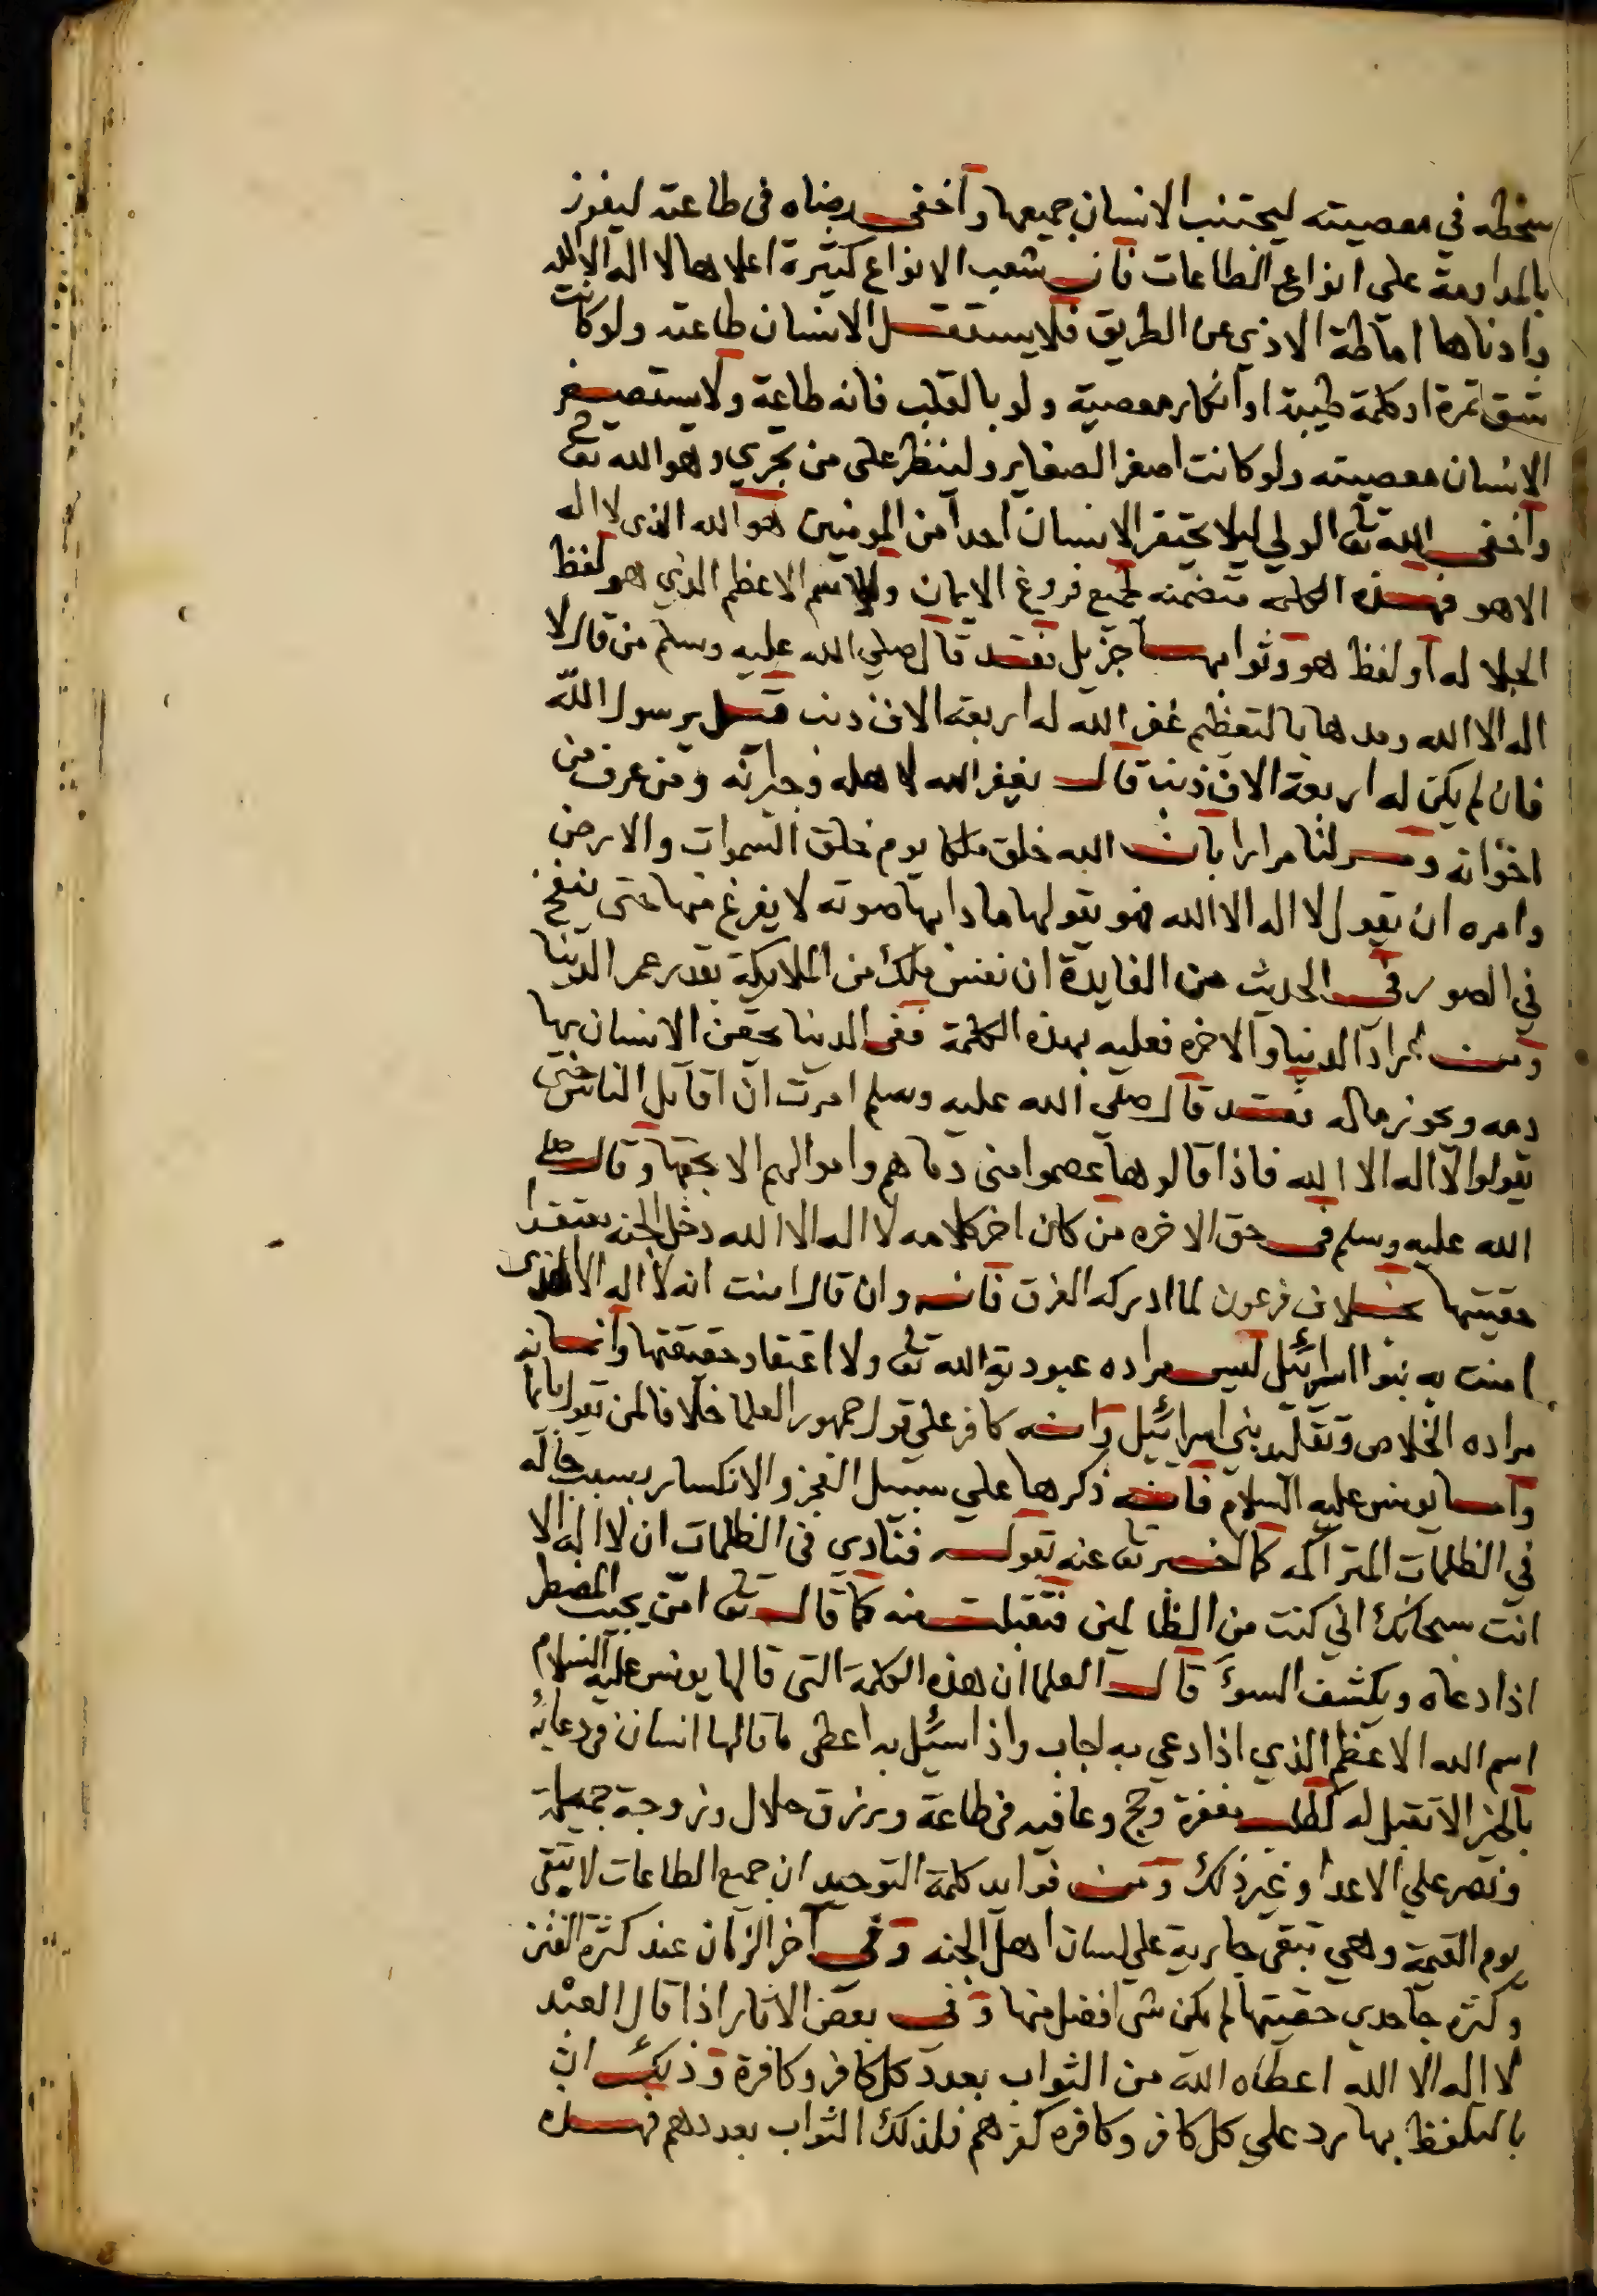 سخطه في معصيته ليجتنب الانسان جميعها واخفى رضاه في طاعته ليفوز
بالمداومة على انواع الطاعات فان شعب الانواع كثيرة اعلاها لا اله الا الله
وادناها اماطة الاذي عن الطريق فلا يستقل الانسان طاعته ولو كانت
شق تمرة او كلمة طيبة او انكار معصية ولو بالقلب فانه طاعة ولا يستصغر
الانسان معصيته ولو كانت اصغر الصغاير ولينظر على من يجري وهو الله تع
واخفى الله تع الولي ليلا يحتقر الانسان احدا من المومنين هو الله الذى لا اله
الا هو فهذه الكلمه متضمنه لجميع فروع الايمان وللاسم الاعظم الذي هو لفظ
الجلا له او لفظ هو وثوابها جزيل فقد قال صلي الله عليه وسلم من قال لا
اله الا الله ومدها بالتعظيم غفر الله له اربعة الاف ذنب قيل يرسول الله
فان لم يكن له اربعة الاف ذنب قال يغفر الله لاهله وجيرانه ومن عرف من
اخوانه ومر لنا مرارا بان الله خلق ملكا يوم خلق السموات والارض
وامره ان يقول لا اله الا الله فهو يقولها مادا بها صوته لا يفرغ منها حتى ينفخ
في الصور فى الحديث من الفايدة ان نفس ملك من الملايكة بقدر عمر الدنيا
ومن اراد الدنيا والاخره فعليه بهذه الكلمة ففى الدنيا يحقن الانسان بها
دمه ويحوز ماله فقد قال صلي الله عليه وسلم امرت ان اقاتل الناس حتى
يقولوا لا اله الا الله فاذا قالوها عصموا منى دماهم واموالهم الا بحقها وقال صلى
الله عليه وسلم فى حق الاخره من كان اخر كلامه لا اله الا الله دخل الجنه معتقدا
حقيتها بخلاف فرعون لما ادركه الغرق فانه وان قال امنت انه لا اله الا الذى
امنت به بنوا اسرائيل ليس مراده عبودية الله تع ولا اعتقاد حقيقتها وانما
مراده الخلاص وتقليد بني اسرائيل وانه كافر علي قول جمهور العلما خلافا لمن يقول بايمانه
واما يونس عليه السلام فانه ذكرها علي سبيل العجز والانكسار بسبب حاله
في الظلمات المتراكمه كما اخبر تع عنه بقوله فنادي فى الظلمات ان لا اله الا
انت سبحانك اني كنت من الظالمين فتقبلت منه كما قال تع امن يجيب المضطر
اذا دعاه ويكشف السوء قال العلما ان هذه الكلمة التى قالها يونس عليه السلام
اسم الله الاعظم الذي اذا دعي به اجاب واذا سئيل به اعطى ما قالها انسان في دعائه
بالخير الا تقبل له كطلب مغفرة وحج وعافيه فى طاعة ورزق حلال وزوجة جميلة
ونصر علي الاعدا وغير ذلك ومن فوايد كلمة التوحيد ان جميع الطاعات لا تبقى
يوم القيمة وهي تبقى جارية علي لسان اهل الجنه وفى آخر الزمان عند كثرة الفتن
وكثرة جاحدي حقيتها لم يكن شى افضل منها وفى بعض الاثار اذا قال العبد
لا اله الا الله اعطاه الله من الثواب بعدد كل كافر وكافرة وذلك ان
بالتلفظ بها يرد علي كل كافر وكافره كفرهم فلذلك الثواب بعددهم فهذه